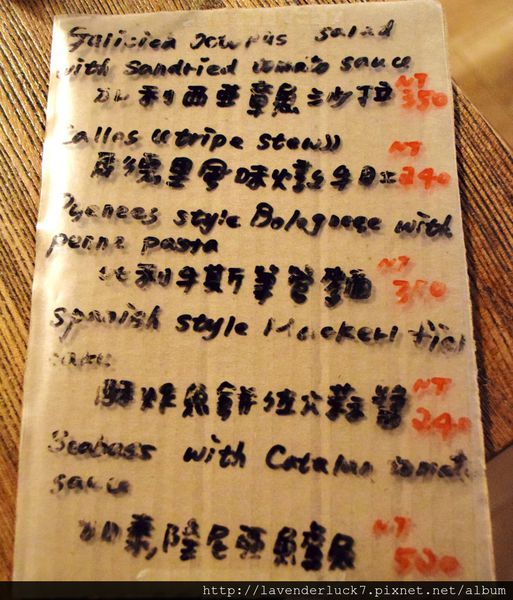 Galicien octopus salad
with Sandried tomato sauce
加利西亞章魚沙拉 NT 350
Callos (tripe stew)
馬德里風味燴牛肚 NT 240
Pyenees style Bolognese with
penne pasta
比利牛斯筆管麵 NT 350
Spanish style Mackerel
酥炸魚餅 蒜醬 NT 240
Seabass with Catalan tomato
sauce
加泰隆尼亞鱸魚 NT 500
http://lavenderluck7.pixnet.net/album